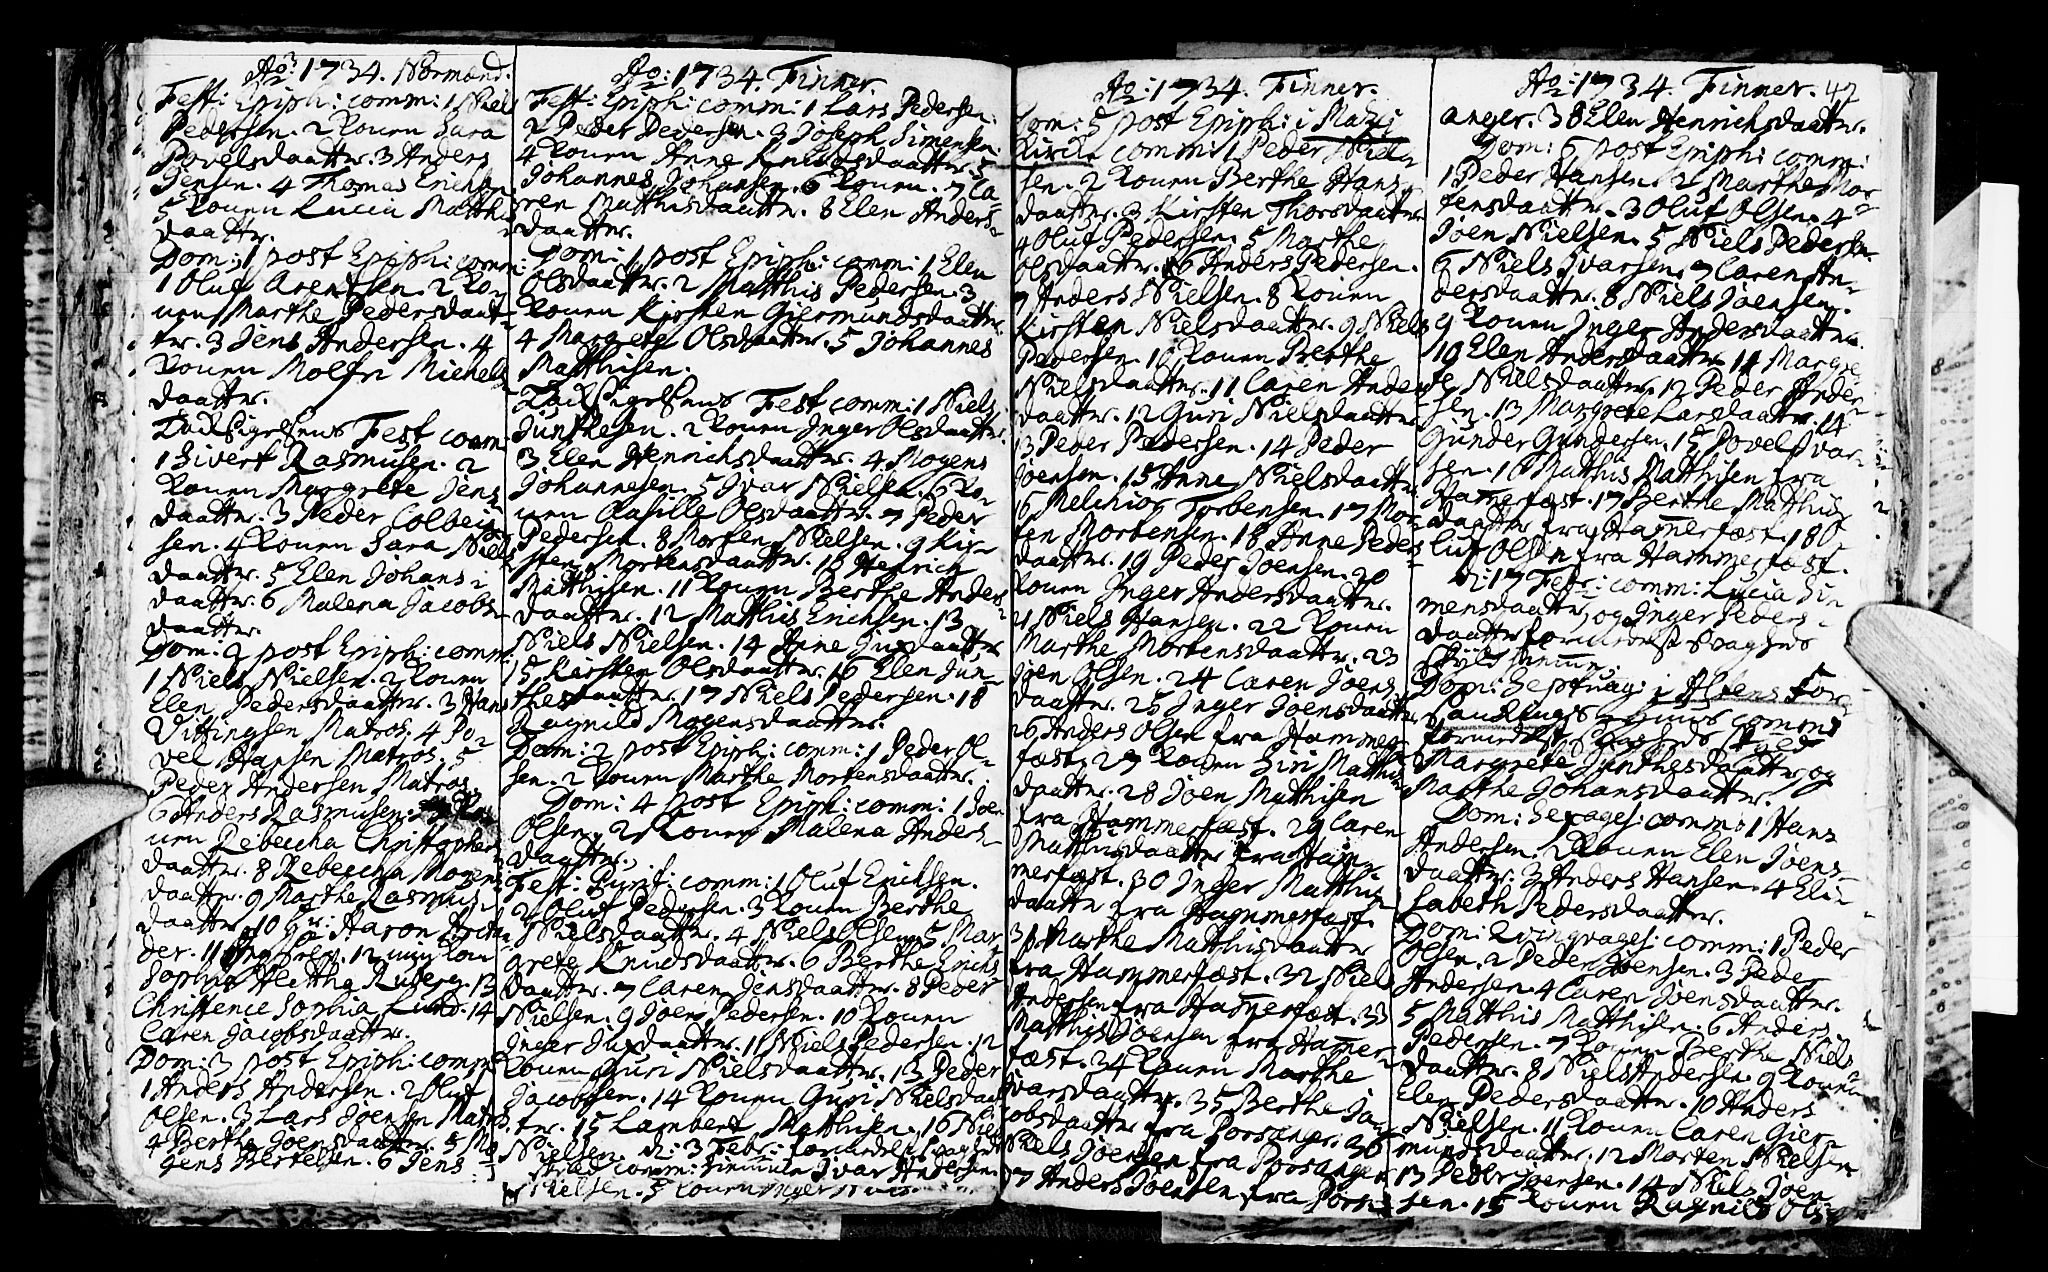 Ao: 1734. Normænd.
Fest: Epiph: comm: 1 Niels
Pedersen. 2 Konen Sara
Povelsdaatter. 3 Anders
Jensen. 4 Thomas Erichsen
5 Konen Lucia Matthis
daatter.
Dom: 1 post Epiph: comm:
1 Oluf Arentsen. 2 Ko-
nen Marthe Pedersdaat-
ter. 3 Jens Andersen. 4
Konen Molfri Michels
daatter.
Taksigelsens Fest comm
1 Sivert Rasmusen. 2
Konen Margrete Jens
daatter. 3 Peder Colbein
sen. 4 Konen Sara Niels
daatter. 5 Elen Johans
daatter. 6 Malena Jacobs
daatter.
Dom: 2 post Epiph: comm:
1 Niels Nielsen. 2 Konen
Elen Pedersdaatter. 3 Hans
Vittingsen Matros. 4 Po-
vel Hansen Matros. 5
Peder Andersen Matros
6 Anders Rasmusen. 7 Ko
nen Rebeccha Christophers
daatter. 8 Rebeccha Mogens
daatter. 9 Marthe Rasmus
daatter. 10 Hr: Aaron
der. 11 12 min Kone
Sophia Hedtha Ruberg. 13
Christence Sophia Lund. 14
Caren Jacobsdaatter.
Dom: 3 post Epiph: comm
1 Anders Andersen. 2 Oluf
Olsen. 3 Lars Joensen Matros.
4 Berthe Joensdaatter. 5 Mo
gens Bertelsen. 6 Jens
Ao: 1734. Finner.
Fest: Epiph: comm: 1 Lars Pedersen.
2 Peder Pedersen. 3 Joseph Simensen.
4 Konen Anne Knudsdaatter. 5
Johannes Johansen. 6 Konen. 7 Ca-
ren Matthisdaatter. 8 Elen Anders-
daatter.
Dom: 1 post Epiph: comm: 1 Elen
Olsdaatter. 2 Matthis Pedersen. 3
Konen Kirsten Giermundsdaatter.
4 Margrete Olsdaatter. 5 Johannes
Matthisen.
Taksigelsens Fest comm: 1 Niels
Junthesen. 2 Konen Inger Olsdaatter.
3 Elen Henrichsdaatter. 4 Mogens
Johannesen. 5 Ivar Nielsen. 6 Ko-
nen Olsdaatter. 7 Peder
Pedersen. 8 Morten Nielsen. 9 Kir-
sten Mortensdaatter. 10 Henrich
Matthisen. 11 Konen Berthe Anders
daatter. 12 Matthis Erichsen. 13
Niels Nielsen. 14 Anne
15 Kirsten Olsdaatter. 16 Elen Jun-
thesdaatter. 17 Niels Pedersen. 18
Ragnild Mogensdaatter.
Dom: 2 post Epiph: comm: 1 Peder Ol-
sen. 2 Konen Marthe Mortensdaatter.
Dom: 4 post Epiph: comm: 1 Joen
Olsen. 2 Konen Malena Anders-
daatter.
Fest: Purif: comm: 1 Oluf Erichsen.
2 Oluf Pedersen. 3 Konen Berthe
Nielsdaatter. 4 Niels Olsen. 5 Mar
grete Knudsdaatter. 6 Berthe Erichs
daatter. 7 Caren Jensdaatter. 8 Peder
Nielsen. 9 Joen Pedersen. 10 Konen
Inger 11 Niels Pedersen. 12
Konen Guri Nielsdaatter. 13 Peder
Jacobsen. 14 Konen Guri Nielsdaat
ter. 15 Lambert Matthisen. 16 Niels
Nielsen. d: 3 Feb:
comm: Ivar Andersen
Nielsen. Konen Inger
Ao: 1734. Finner.
Dom: 5 post Epiph: i Mazi
Kircke comm: 1 Peder Niel-
sen. 2 Konen Berthe Hans
daatter. 3 Kirsten Thorsdaatter
4 Oluf Pedersen. 5 Marthe
Olsdaatter. 6 Anders Pedersen.
7 Anders Nielsen. 8 Konen
Kirsten Nielsdaatter. 9 Niels
Pedersen. 10 Konen Berthe
Nielsdaatter. 11 Caren Anders
daatter. 12 Guri Nielsdaatter
13 Peder Pedersen. 14 Peder
Joensen. 15 Anne Nielsdaatter
16 Melchior Torbensen. 17 Mor
ten Mortensen. 18 Anne Peders
daatter. 19 Peder Joensen. 20
Konen Inger Andersdaatter.
21 Niels Hansen. 22 Konen
Marthe Mortensdaatter. 23
Joen Olsen. 24 Caren Joens
daatter. 25 Inger Joensdaatter
26 Anders Olsen fra Hammer
fæst. 27 Konen Siri Matthis
daatter. 28 Joen Mathisen
fra Hammerfæst. 29 Caren
Matthisdaatter fra Ham-
merfæst. 30 Inger Matthis
daatter fra Hammerfæst.
31 Marthe Matthisdaatter
fra Hammerfæst. 32 Niels
Andersen fra Hamerfæst. 33
Matthis Joensen fra Hamer
fæst. 34 Konen Marthe
Ivarsdaatter. 35 Berthe Ja-
cobsdaatter fra Porsanger. 36
Niels Joensen fra Porsanger
37 Anders Joensen fra Pors-
Ao: 1734. Finner. 42
anger. 38 Elen Henrichsdaatter.
Dom: 6 post Epiph: comm:
1 Peder Hansen. 2 Marthe Mor
tensdaatter. 3 Oluf Olsen. 4
Joen Nielsen. 5 Niels Pedersen.
6 Niels Ivarsen. 7 Caren An-
dersdaatter. 8 Niels Joensen.
9 Konen Inger Andersdaatter.
10 Elen Andersdaatter. 11 Margre
te Nielsdaatter. 12 Peder Ander-
sen. 13 Margrete Larsdaatter. 14
Gunder Gundersen. 15 Povel Ivar-
sen. 16 Matthis Matthisen fra
Hamerfæst. 17 Berthe Matthis
daatter fra Hamerfæst. 18 O
luf Olsen fra Hammerfæst.
d: 17 Febr: comm: Lucia Si
mensdaatter og Inger Peders-
daatter formedelst Svagheds
Skyld hiemme.
Dom: Septuag: i Altens For-
comm:
formedelst Svagheds Skyld
Margrete Junthesdaatter og
Marthe Johansdaatter.
Dom: Sexages: comm: 1 Hans
Andersen. 2 Konen Elen Joens-
daatter. 3 Anders Hansen. 4 Eli-
sabeth Pedersdaatter.
Dom: Qvinqvages: comm: 1 Peder
Olsen. 2 Peder Joensen. 3 Peder
Andersen. 4 Caren Joensdaatter.
5 Matthis Matthisen. 6 Anders
Pedersen. 7 Konen Berthe Niels
daatter. 8 Niels Andersen. 9 Konen
Elen Pedersdaatter. 10 Anders
Nielsen. 11 Konen Caren Gier-
mundsdaatter. 12 Morten Nielsen
13 Peder Joensen. 14 Niels Joen
sen. 15 Konen Ragnild Ols